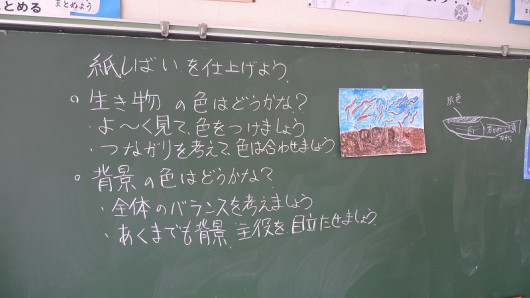 とめる
まとめよう
紙しばいを仕上げよう.
○生き物の色はどうかな?
・よ〜く見て、色をつけましょう
・つながりを考えて、色は合わせましょう
○背景の色はどうかな?
・全体のバランスを考えましょう
・あくまでも背景.主役を目立たせましょう.
白